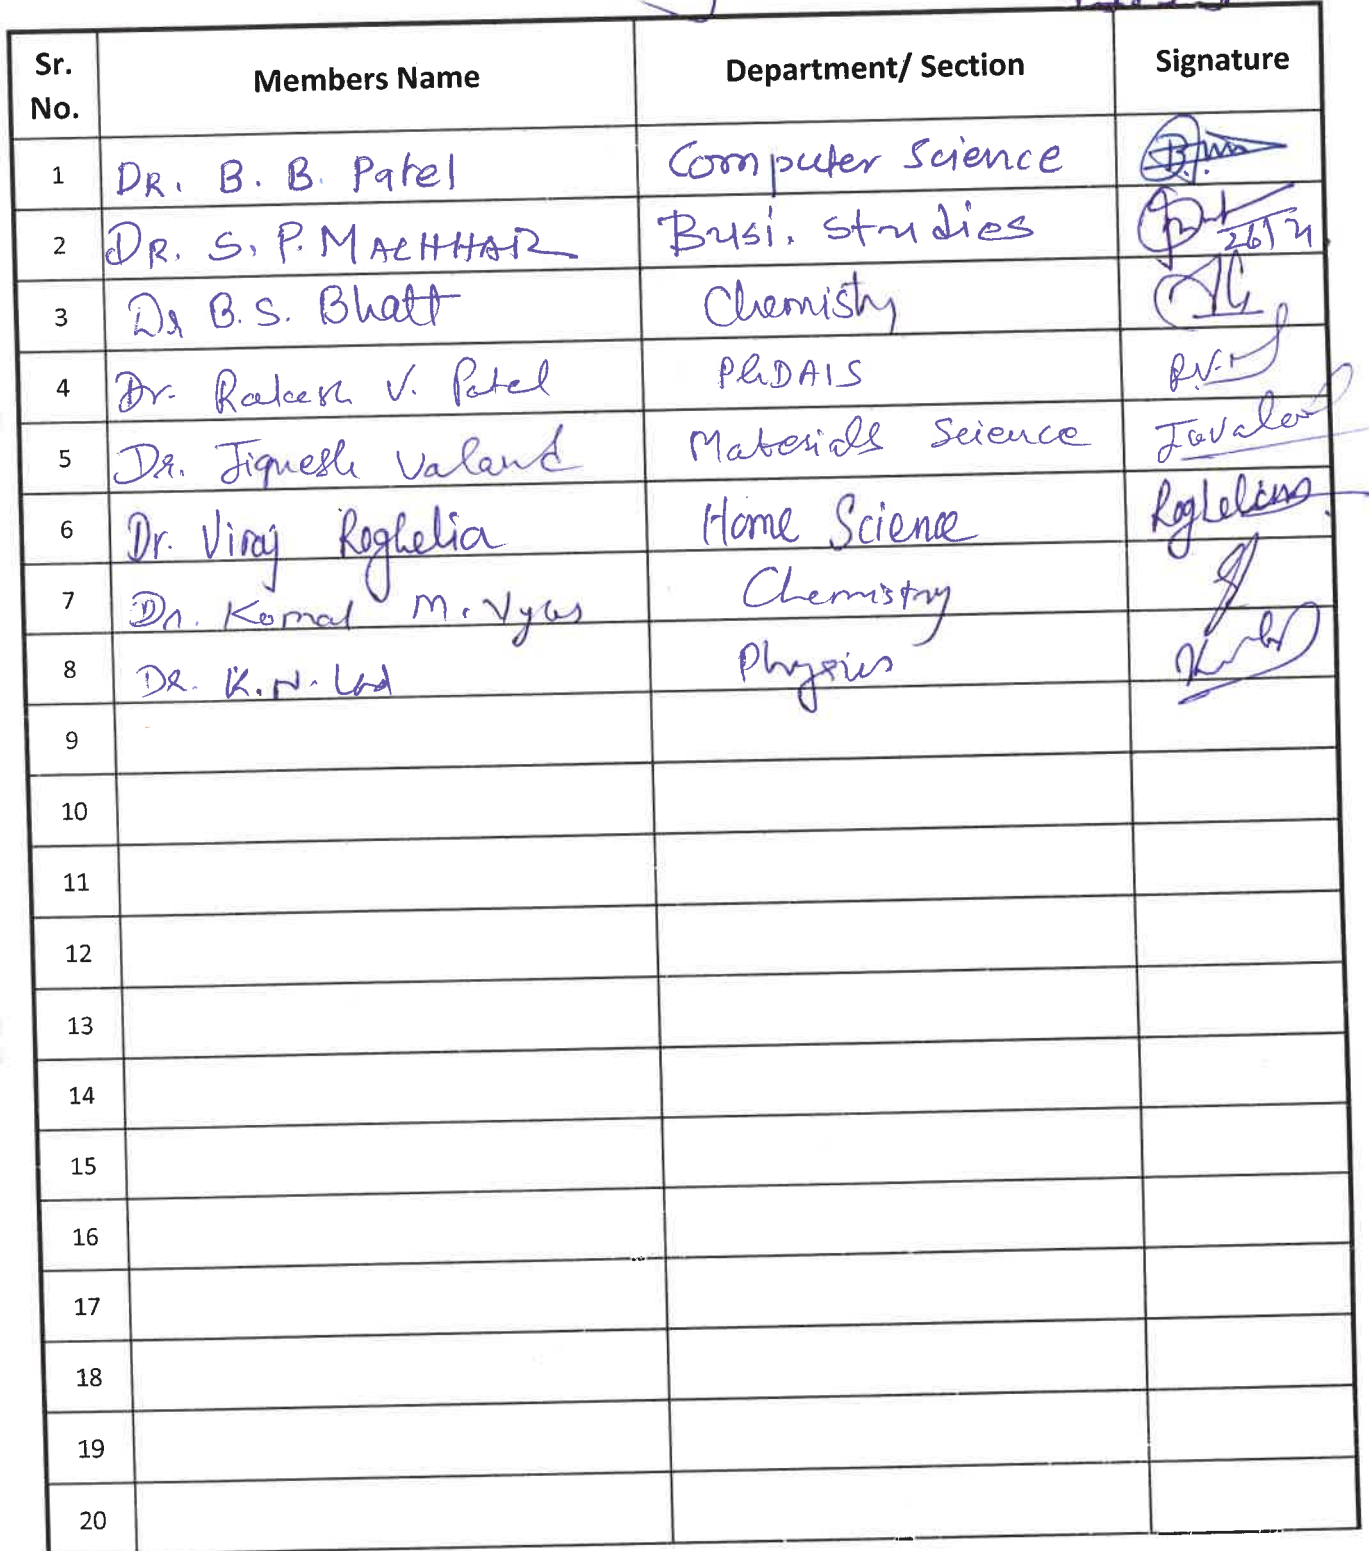 Sr. No. Members Name Department/ Section Signature
1 DR. B. B. Patel Computer Science
2 DR. S. P. MACHHAR Busi. Studies
3 Dr B.S. Bhatt Chemisty
4 Dr. Rakesh V. Patel PGDAIS
5 Dr. Jignesh Valand Materials Science
6 Dr. Viraj Roghelia Home Science Roghelia
7 Dr. Komal M. Vyas Chemistry
8 DR. K.N. Lad Physics
9
10
11
12
13
14
15
16
17
18
19
20